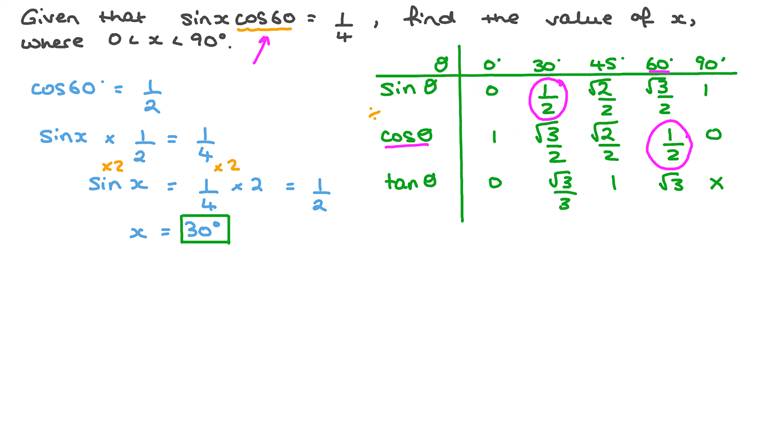 Given that sinx cos60 = 1/4 , find the value of x,
where 0 < x < 90°.
cos60° = 1/2
sinx × 1/2 = 1/4
×2 ×2
sin x = 1/4 × 2 = 1/2
x = 30°
θ 0° 30° 45° 60° 90°
sin θ 0 1/2 √2/2 √3/2 1
÷
cosθ 1 √3/2 √2/2 1/2 0
tanθ 0 √3/3 1 √3 ×